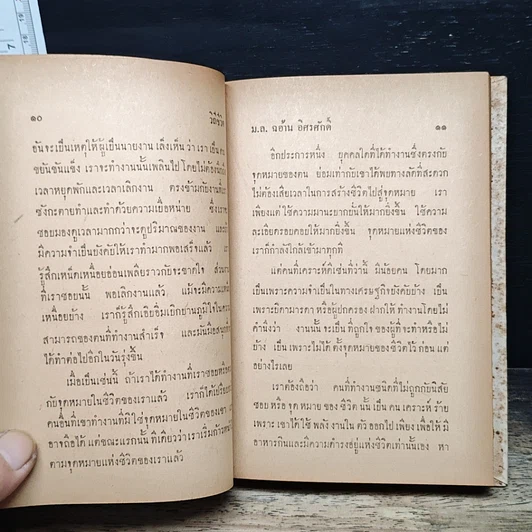 ๑๐ วิถีชีวิต
อันจะเป็นเหตุให้ผู้เป็นนายงาน เล็งเห็น ว่า เรา เป็น
ขยันขันแข็ง เราจะทำงานนั้นเพลินไป โดยไม่ต้องนึกถึง
เวลาหยุดพักและเวลาเลิกงาน ตรงข้ามกับงานที่เรา
ซังกะตายทำและทำด้วยความเบื่อหน่าย ซึ่งเราจะ
ชอบมองดูเวลามากกว่าจะดูปริมาณของงาน และ
มีความจำเป็นยังคับให้เราทำมากพอเสร็จแล้ว เรา
รู้สึกเหน็ดเหนื่อยอ่อนเพลียราวกับจะขาดใจ ส่วน
ที่เราชอบนั้น พอเลิกงานแล้ว แม้จะมีความ
เหนื่อยบ้าง เราก็รู้สึกเอิบอิ่มเบิกบานภูมิใจในความ
สามารถของตนที่ทำงานสำเร็จ และมันมือ
ได้ทำต่อไปอีกในวันรุ่งขึ้น
เมื่อเป็นเช่นนี้ ถ้าเราได้ทำงานที่เราชอบหรือ
กับจุดหมายในชีวิตของเราแล้ว เราก็ได้เปรียบ
คนอื่นที่เขาทำงานที่มิใช่จุดหมายในชีวิตของเขา
อาจถือได้ แต่ขณะแรกนั้น ทีเดียวว่า เราเริ่มก้าว
ตามจุดหมายแห่งชีวิตของเราแล้ว
ม.ล. ฉอ้าน อิศรศักดิ์ ๑๑
อีกประการหนึ่ง บุคคลใดที่ได้ทำงานซึ่งตรงกับ
จุดหมายของตน ย่อมเท่ากับเขาได้พบทางลัดที่สะดวก
ไม่ต้องเสียเวลาในการสร้างชีวิตไปสู่จุดหมาย เรา
เพียงแต่ใช้ความมานะยากยั่นให้มากยิ่งขึ้น ใช้ความ
ละเอียดรอบคอบให้มากยิ่งขึ้น จุดหมายแห่งชีวิตของ
เราก็กำลังใกล้เข้ามาทุกที
แต่คนที่เคราะห์ดีเช่นที่ว่านี้ มีน้อยคน โดยมาก
เป็นเพราะความจำเป็นในทางเศรษฐกิจยังคับบ้าง เป็น
เพราะบิดามารดา หรือผู้ปกครอง ฝากให้ ทำงานโดยไม่
คำนึงว่า งานนั้น จะเป็น ที่ถูกใจ ของผู้ที่จะทำหรือไม่
บ้าง เป็น เพราะไม่ได้ ตั้งจุดหมายของชีวิตไว้ ก่อน แต่
อย่างไรเลย
เราต้องถือว่า คนที่ทำงานชนิดที่ไม่ถูกกับนิสัย
ชอบ หรือ จุดหมาย ของ ชีวิต นั้น เป็น คน เคราะห์ ร้าย
เพราะ เขาได้ใช้ พลังงานใน ตัว ออกไป เพียง เพื่อให้ มี
อาหารกินและมีความดำรงอยู่แห่งชีวิตเท่านั้นเอง หา